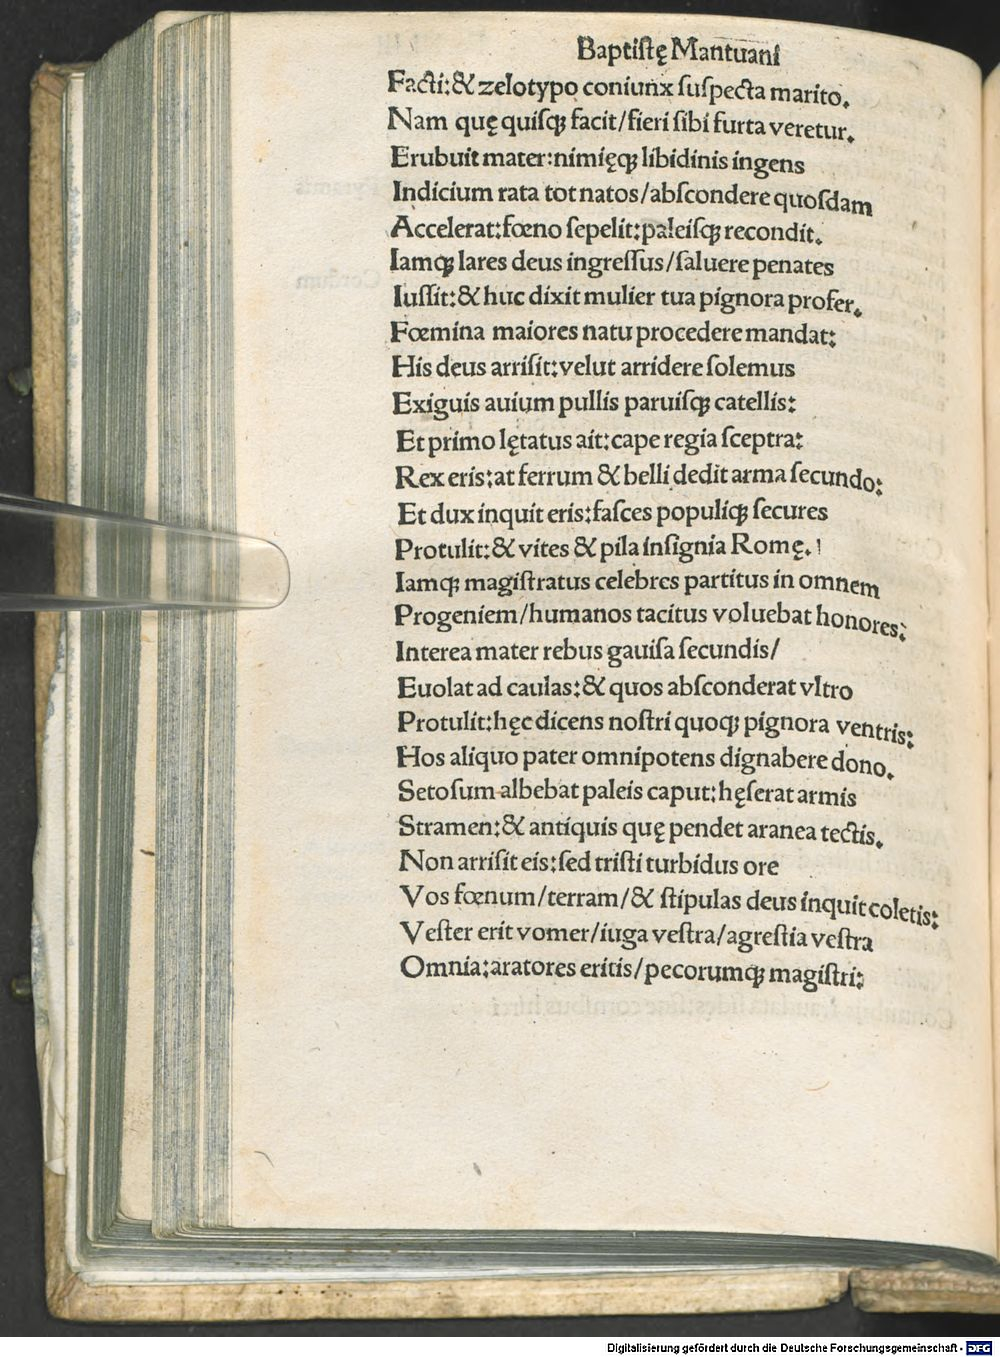 Baptistę Mantuani
Facti:& zelotypo coniunx ſuſpecta marito.
Nam quę quiſqꝫ facit/fieri ſibi furta veretur.
Erubuit mater:nimięqꝫ libidinis ingens
Indicium rata tot natos/abſcondere quoſdam
Accelerat:fœno ſepelit:paleiſqꝫ recondit.
Iamqꝫ lares deus ingreſſus/ſaluere penates
Iuſſit:& huc dixit mulier tua pignora profer.
Fœmina maiores natu procedere mandat:
His deus arriſit:velut arridere ſolemus
Exiguis auium pullis paruiſqꝫ catellis:
Et primo lętatus ait:cape regia ſceptra:
Rex eris:at ferrum & belli dedit arma ſecundo:
Et dux inquit eris:faſces populiqꝫ ſecures
Protulit:& vites & pila inſignia Romę.
Iamqꝫ magiſtratus celebres partitus in omnem
Progeniem/humanos tacitus voluebat honores:
Interea mater rebus gauiſa ſecundis/
Euolat ad caulas:& quos abſconderat vltro
Protulit:hęc dicens noſtri quoqꝫ pignora ventris:
Hos aliquo pater omnipotens dignabere dono.
Setoſum albebat paleis caput:hęſerat armis
Stramen:& antiquis quę pendet aranea tectis.
Non arriſit eis:ſed triſti turbidus ore
Vos fœnum/terram/& ſtipulas deus inquit coletis:
Veſter erit vomer/iuga veſtra/agreſtia veſtra
Omnia:aratores eritis/pecorumqꝫ magiſtri:
Digitalisierung gefördert durch die Deutsche Forschungsgemeinschaft - DFG